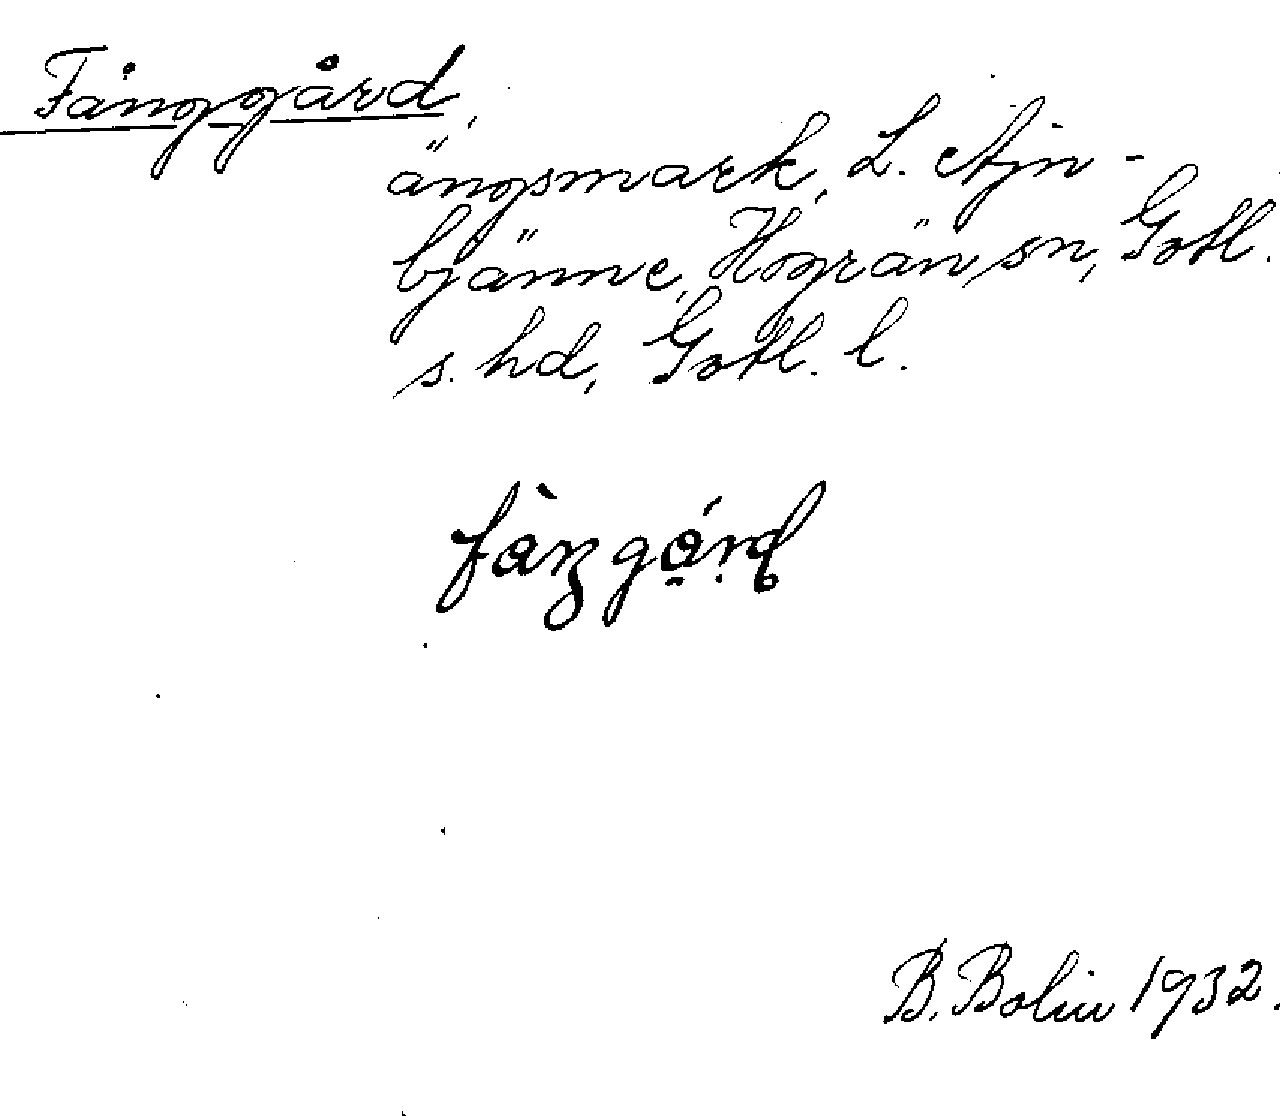 Fånggård,
ängsmark, L. Ajn-
bjänne, Hogrän sn, Gotl.
s. hd, Gotl. l.
B. Bolin 1932.